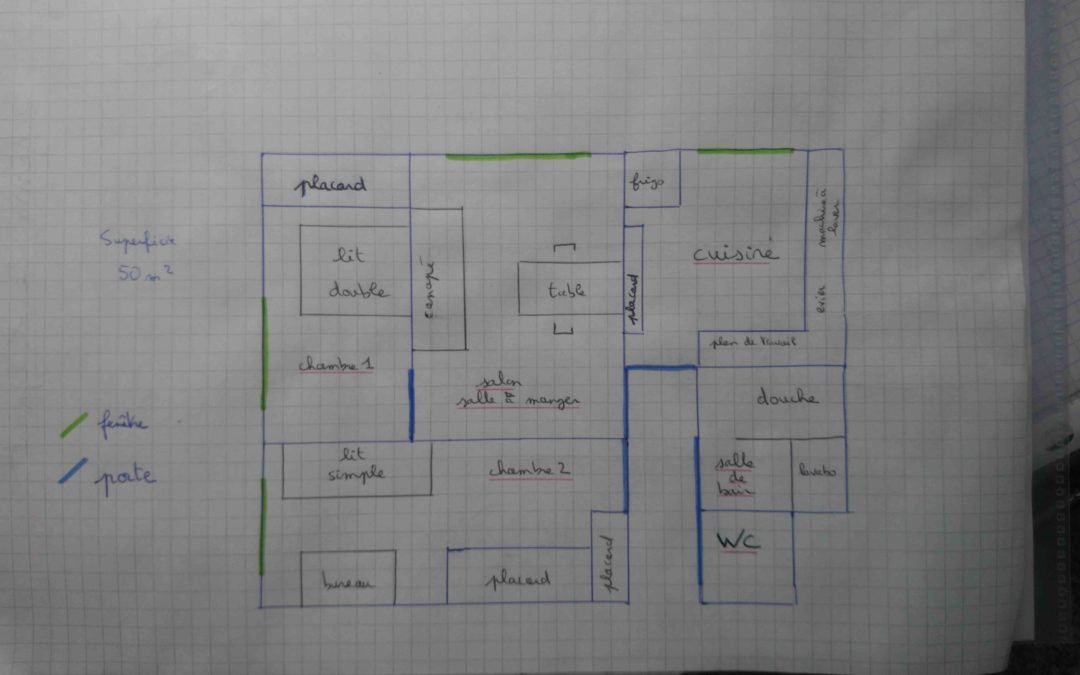 placard
frigo
machine à
laver
Superficie
50 m²
lit
double
canapé
table
placard
cuisine
evier
plan de travail
chambre 1
salon
salle à manger
douche
fenêtre
porte
lit
simple
chambre 2
salle
de
bain
lavabo
WC
bureau
placard
placard